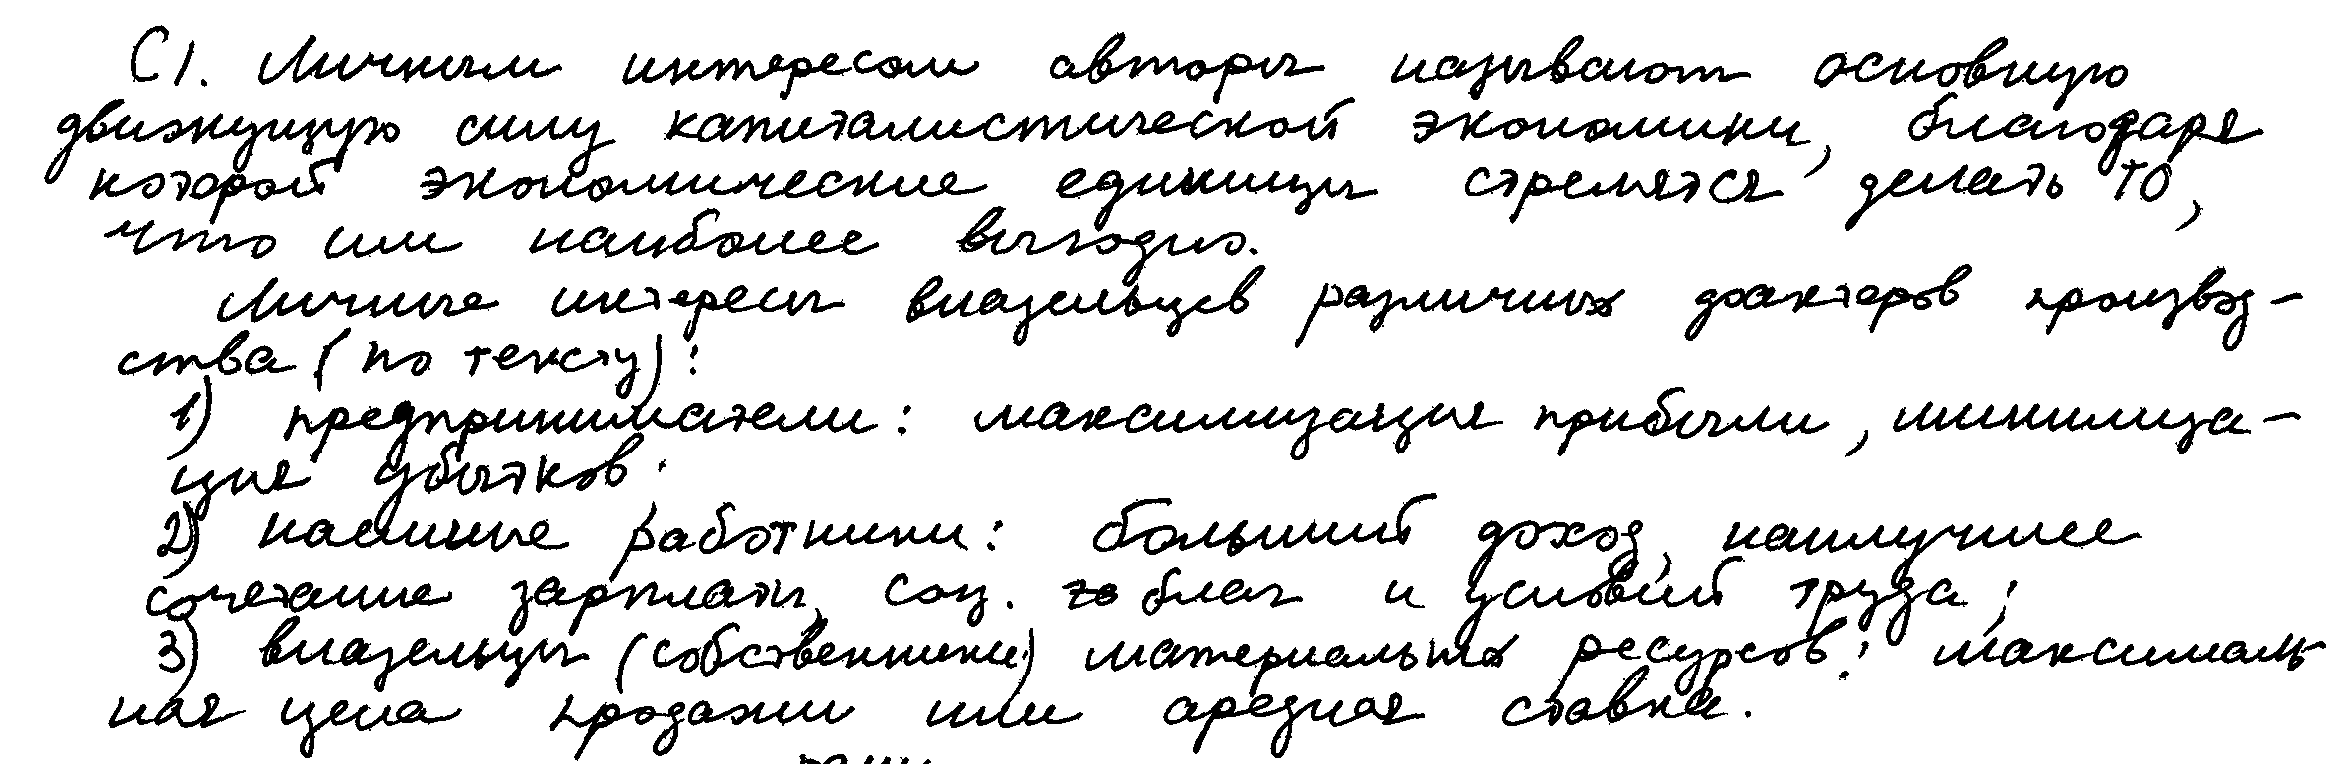 С1. Личным интересом авторы называют основную
движущую силу капиталистической экономики, благодаря
которой экономические единицы стремятся делать то,
что им наиболее выгодно.
Личные интересы владельцев различных факторов производ-
ства (по тексту):
1) предприниматели: максимизация прибыли, минимиза-
ция убытков.
2) наемные работники: больший доход, наилучшее
сочетание зарплаты, соц. благ и условий труда;
3) владельцы (собственники) материальных ресурсов: максималь
ная цена продажи или аредная ставка.